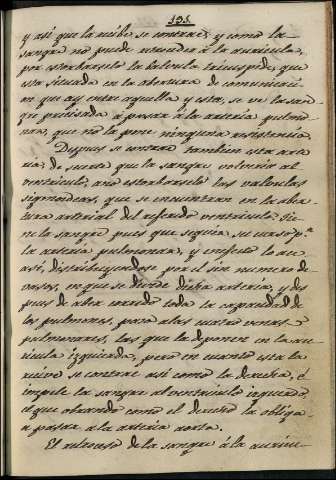 191.
y así que la recibe se contrae; y como la
sangre no puede retroceder á la auricula,
por estorbarselo la balbula tricuspide, que
esta situada en la abertura de comunicaci-
on que ay entre aquella y esta, se ve la san-
gre precisada á pasar á la arteria pulmo-
nar, que no la pone ninguna resistencia.
Despues se contrae tambien esta arte
ria, de suerte que la sangre volveria al
ventriculo, ano estorbarselo las valvulas
sigmoideas, que se encuentran en la aber
tura arterial del referido ventriculo. Tie-
ne la sangre pues que seguir su curso pr.
la arteria pulmonar, y en efecto lo ace
asi, distribuyendose por el sin numero de
vasos, en que se divide dicha arteria, y des
pues de aber corrido toda la capacidad de
los pulmones, pasa alas cuatro venas
pulmonares, las que la deponen en la au-
ricula izquierda, pero en cuanto esta la
recive se contrae asi como la derecha, é
impele la sangre al ventriculo izquierdo
el que obrando como el derecho la obliga
a pasar a la arteria aorta.
El retroceso de la sangre á la auricu-